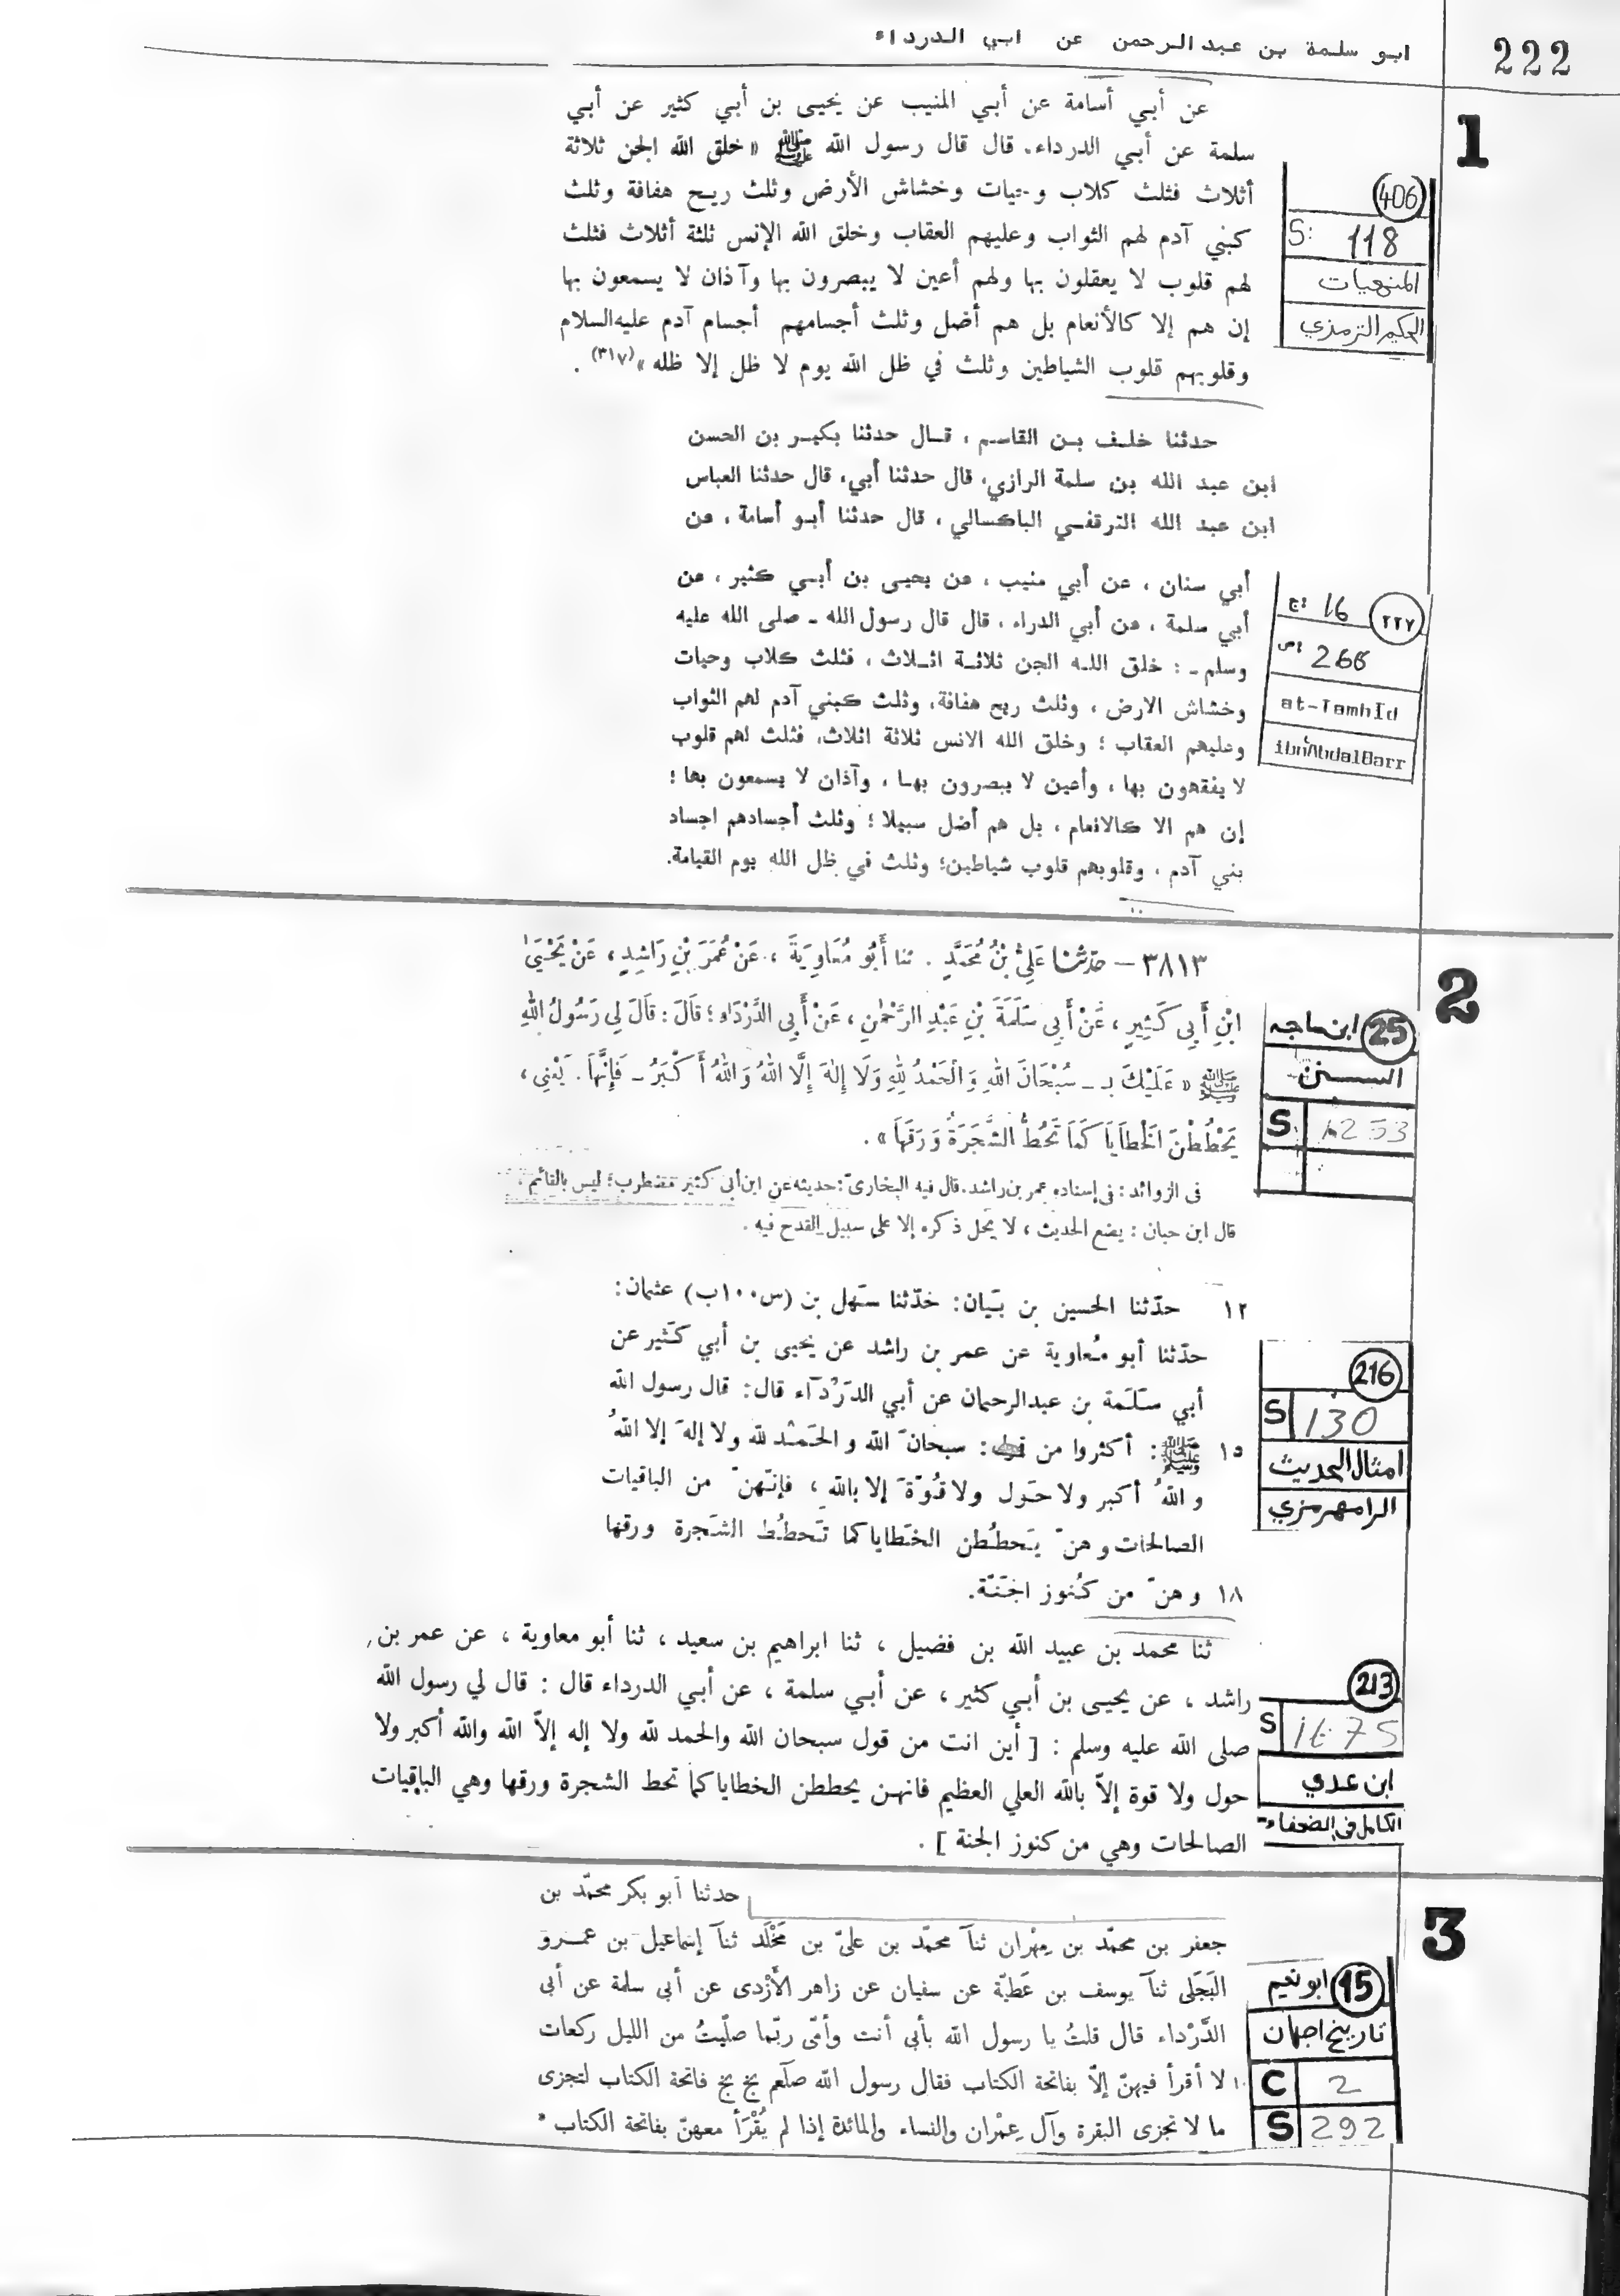 222
ابو سلمة بن عبد الرحمن عن ابي الدرداء
1
عن أبي أسامة عن أبي المنيب عن يحيى بن أبي كثير عن أبي
سلمة عن أبي الدرداء. قال قال رسول الله ﷺ «خلق الله الجن ثلاثة
أثلاث فثلث كلاب وحيات وخشاش الأرض وثلث ريح هفافة وثلث
كبني آدم لهم الثواب وعليهم العقاب وخلق الله الإنس ثلثة أثلاث فثلث
لهم قلوب لا يعقلون بها ولهم أعين لا يبصرون بها وآذان لا يسمعون بها
إن هم إلا كالأنعام بل هم أضل وثلث أجسامهم أجسام آدم عليه السلام
وقلوبهم قلوب الشياطين وثلث في ظل الله يوم لا ظل إلا ظله»(٣١٧) .
406
S: 118
المنهيات
الحكيم الترمذي
حدثنا خلف بن القاسم ، قال حدثنا بكير بن الحسن
ابن عبد الله بن سلمة الرازي، قال حدثنا أبي، قال حدثنا العباس
ابن عبد الله الترقفي الباكسالي ، قال حدثنا أبو أسامة ، عن
أبي سنان ، عن أبي منيب ، عن يحيى بن أبي كثير ، عن
أبي سلمة ، عن أبي الدراء ، قال قال رسول الله ـ صلى الله عليه
وسلم ـ : خلق الله الجن ثلاثة اثلاث ، فثلث كلاب وحيات
وخشاش الارض ، وثلث ريح هفافة، وثلث كبني آدم لهم الثواب
وعليهم العقاب ؛ وخلق الله الانس ثلاثة اثلاث، فثلث لهم قلوب
لا يفقهون بها ، وأعين لا يبصرون بها ، وآذان لا يسمعون بها ؛
إن هم الا كالانعام ، بل هم أضل سبيلا ؛ وثلث أجسادهم اجساد
بني آدم ، وقلوبهم قلوب شياطين؛ وثلث في ظل الله يوم القيامة.
٢٢٧
ج: 16
ص: 266
at-Tamhīd
ibn ʿAbdalBarr
2
٣٨١٣ – حَدَّثَنَا عَلِيُّ بْنُ مُحَمَّدٍ . ثنا أَبُو مُعَاوِيَةَ ، عَنْ عُمَرَ بْنِ رَاشِدٍ ، عَنْ يَحْيَىٰ
ابْنِ أَبِي كَثِيرٍ ، عَنْ أَبِي سَلَمَةَ بْنِ عَبْدِ الرَّحْمٰنِ ، عَنْ أَبِي الدَّرْدَاءِ ؛ قَالَ : قَالَ لِي رَسُولُ اللهِ
ﷺ « عَلَيْكَ بِـ ـ سُبْحَانَ اللهِ وَالْحَمْدُ لِلهِ وَلَا إِلٰهَ إِلَّا اللهُ وَاللهُ أَكْبَرُ ـ فَإِنَّهَا . يَعْنِي ،
يَحْطُطْنَ الْخَطَايَا كَمَا تَحُطُّ الشَّجَرَةُ وَرَقَهَا » .
فى الزوائد : فى إسناده عمر بن راشد. قال فيه البخارىّ : حديثه عن ابن أبى كثير مضطرب؛ ليس بالقائم .
قال ابن حبان : يضع الحديث ، لا يحل ذكره إلا على سبيل القدح فيه .
25
ابن ماجه
السنن
S: 1253
١٢ حدّثنا الحسين بن بَيان: حَدّثنا سَهل بن (س١٠٠ب) عثمان:
حدّثنا أبو مُعاوية عن عمر بن راشد عن يحيى بن أبي كَثير عن
أبي سَلَمة بن عبدالرحمان عن أبي الدَرْدَآء قال: قال رسول الله
١٥ ﷺ: أكثروا من قول: سبحانَ الله والحَمْد لله ولا إلهَ إلا اللهُ
واللهُ أكبر ولا حَول ولا قُوّةَ إلا بالله ، فإنّهنّ من الباقيات
الصالحات وهنّ يَحطُطن الخَطايا كما تَحطُط الشَجرة ورقها
١٨ وهنّ من كُنوز الجَنّة.
216
S 130
امثال الحديث
الرامهرمزي
ثنا محمد بن عبيد الله بن فضيل ، ثنا ابراهيم بن سعيد ، ثنا أبو معاوية ، عن عمر بن
راشد ، عن يحيى بن أبي كثير ، عن أبي سلمة ، عن أبي الدرداء قال : قال لي رسول الله
صلى الله عليه وسلم : [ أين انت من قول سبحان الله والحمد لله ولا إله إلاّ الله والله أكبر ولا
حول ولا قوة إلاّ بالله العلي العظيم فانهن يحططن الخطايا كما تحط الشجرة ورقها وهي الباقيات
الصالحات وهي من كنوز الجنة ] .
213
S
ابن عدي
الكامل في الضعفاء
3
حدثنا أبو بكر محمّد بن
جعفر بن محمّد بن مِهْران ثنآ محمّد بن علىّ بن مَخْلَد ثنآ إسماعيل بن عمرو
البَجَلى ثنآ يوسف بن عَطيّة عن سفيان عن زاهر الأَزْدى عن أبى سلمة عن أبى
الدَّرْداء قال قلتُ يا رسول الله بأبى أنت وأمّى ربّما صلّيتُ من الليل ركعات
١٠ لا أقرأ فيهنّ إلاّ بفاتحة الكتاب فقال رسول الله صلعم بخ بخ فاتحة الكتاب لتجزى
ما لا تجزى البقرة وآل عِمْران والنساء والمائدة إذا لم يُقْرَأ معهنّ بفاتحة الكتاب *
15
ابو نعيم
تاريخ اصبهان
C 2
S 292